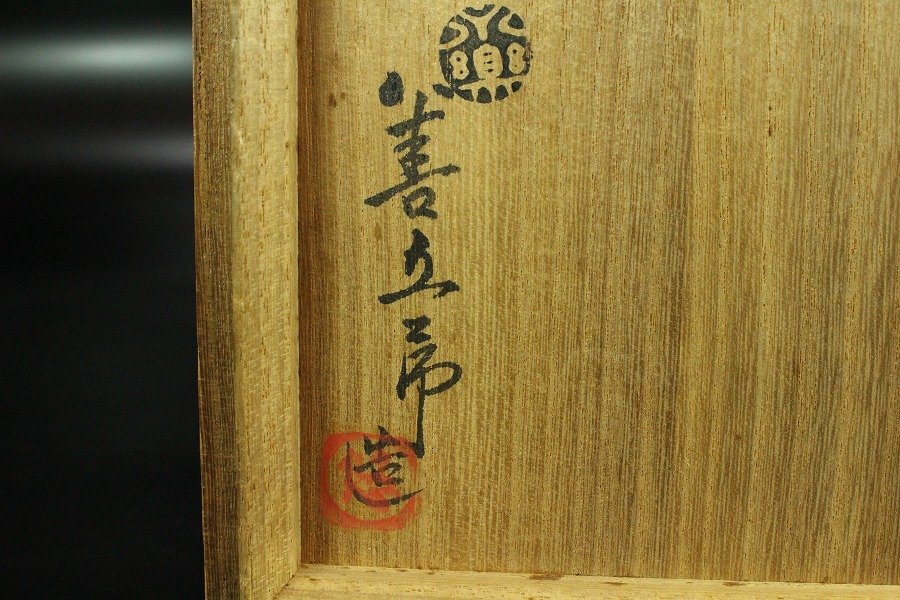 善五郎
造